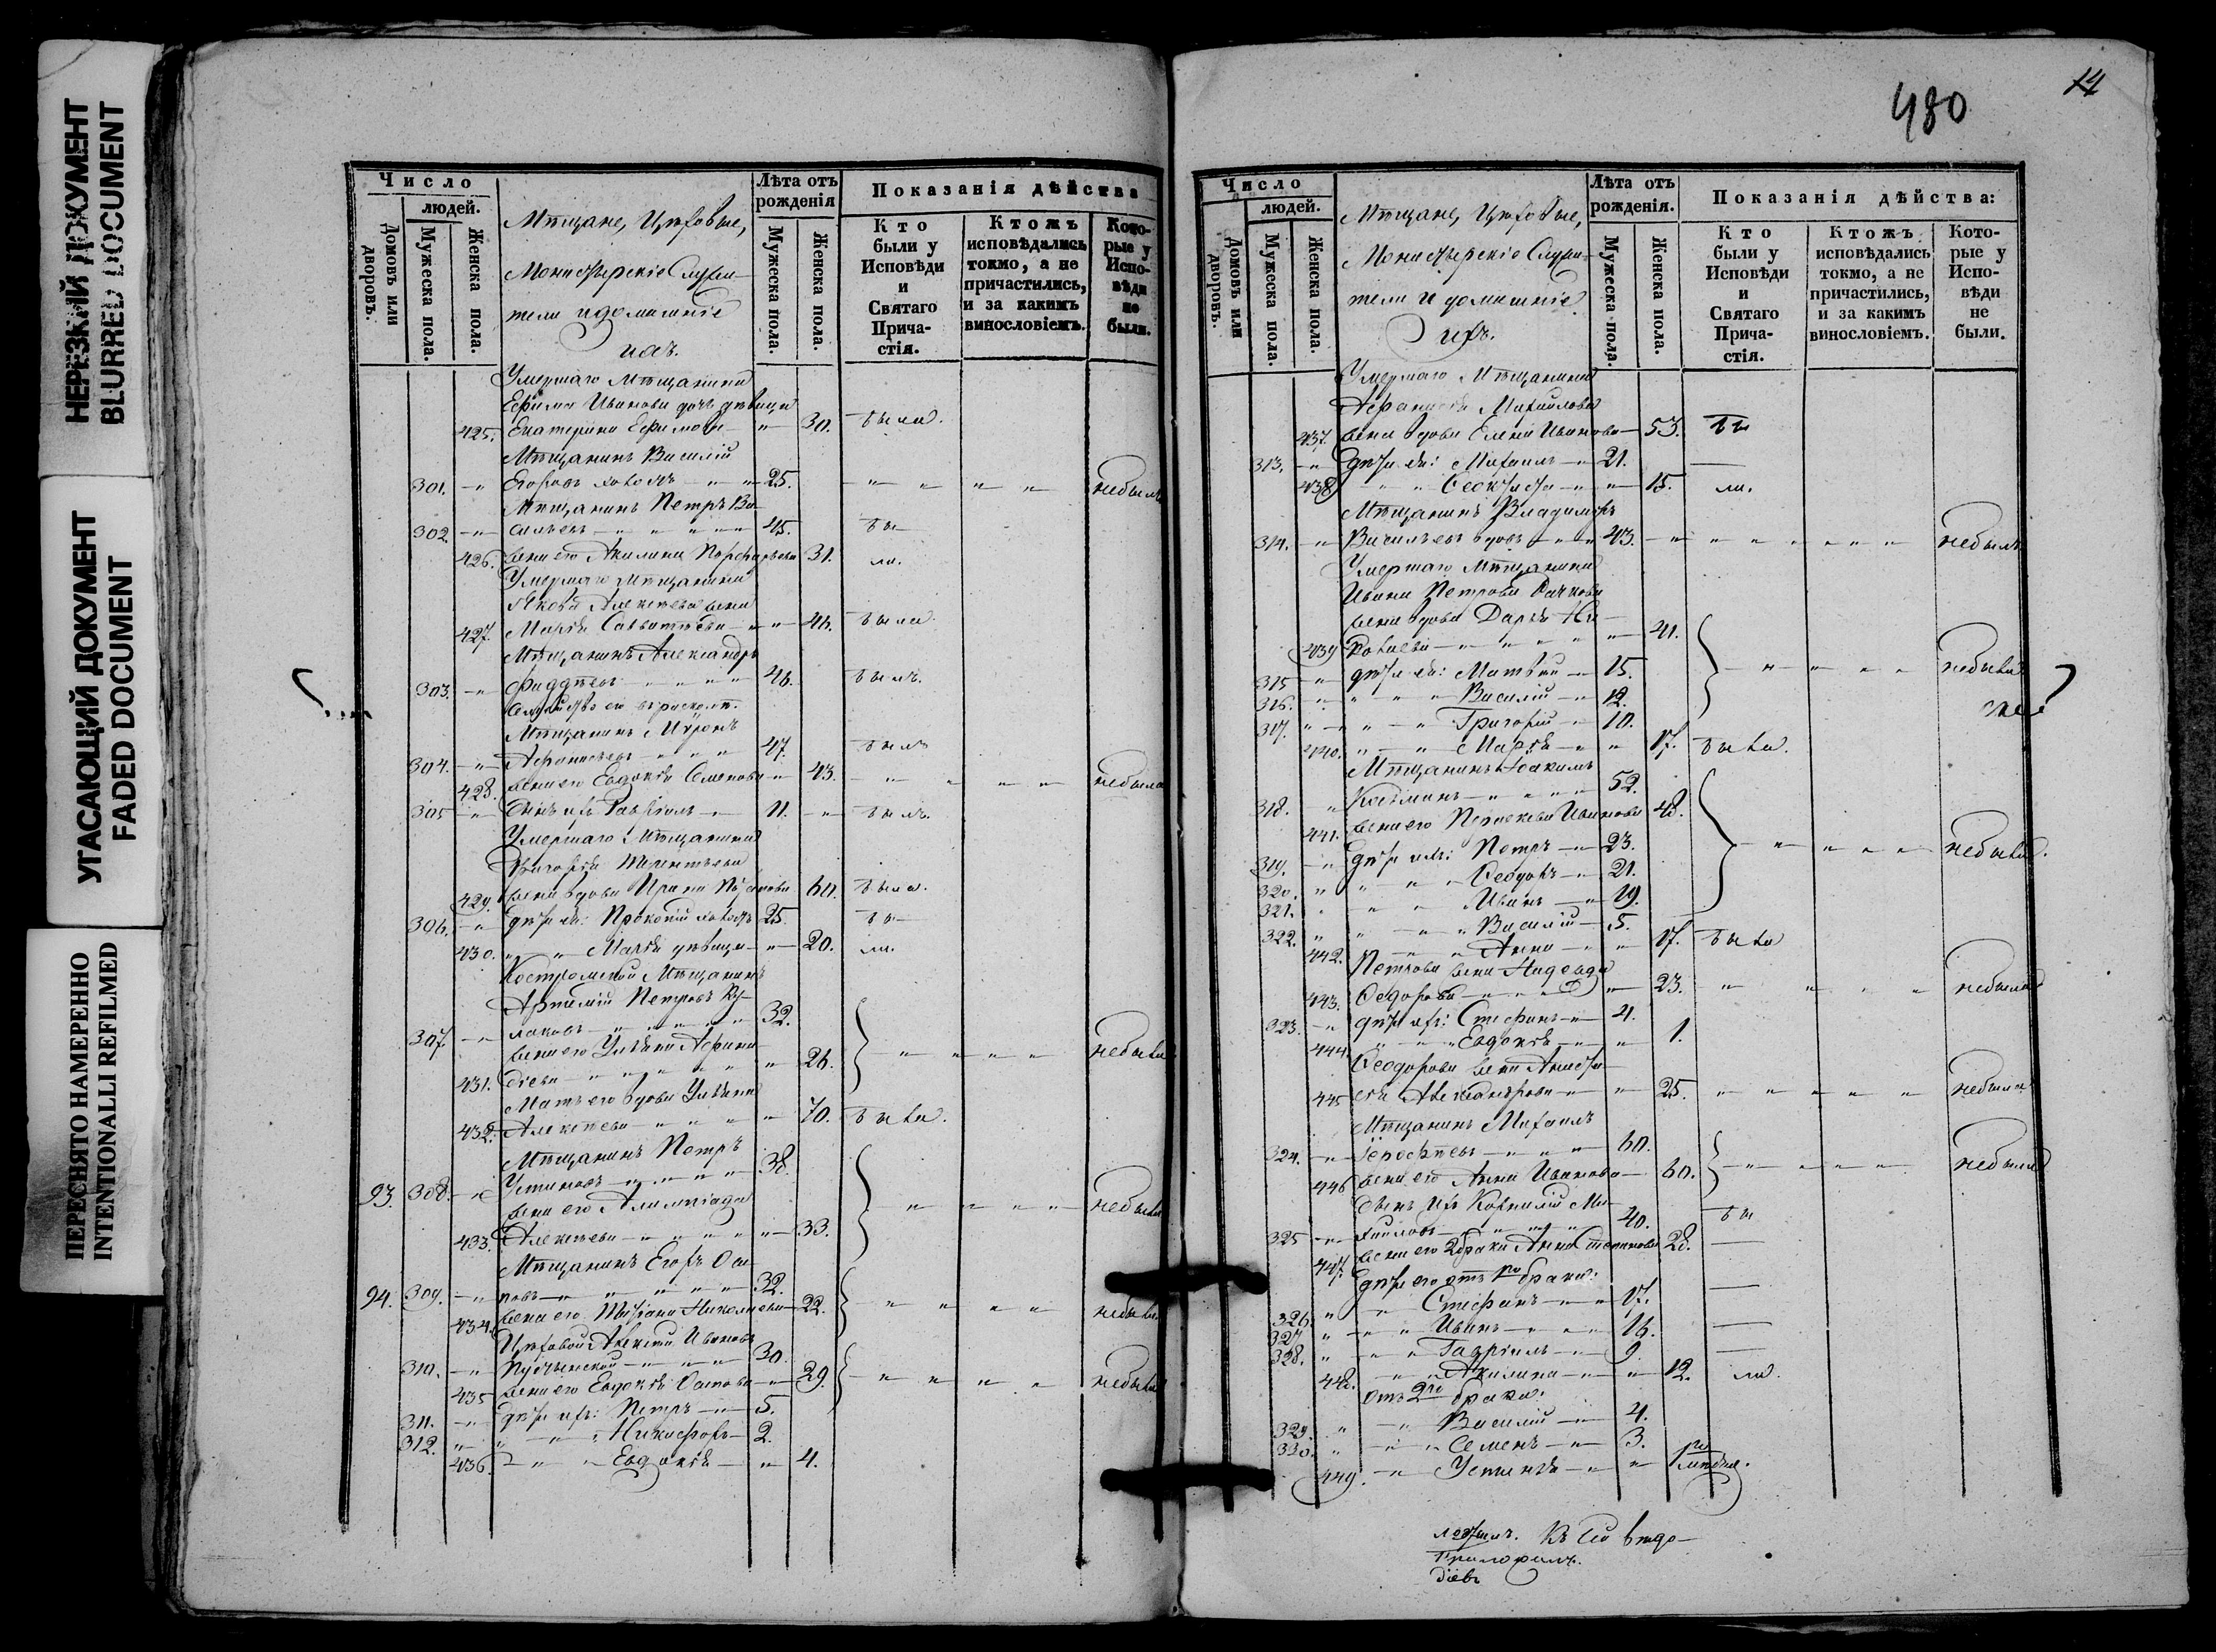 НЕРЕЗКИЙ ДОКУМЕНТ
BLURRED DOCUMENT
УГАСАЮЩИЙ ДОКУМЕНТ
FADED DOCUMENT
ПЕРЕСНЯТО НАМЕРЕННО
INTENTIONALLI REFILMED
Число
людей.
Домовъ или дворовъ.
Мужеска пола.
Женска пола.
Мѣщане, Цѣховые,
Монастырскіе Служи-
тели и домашніе
ихъ.
Лѣта отъ рожденія
Мужеска пола.
Женска пола.
Показанія дѣйства
Кто были у Исповѣди и Святаго Прича-стія.
Ктожъ исповѣдались токмо, а не причастились, и за какимъ винословіемъ.
Кото-рые у Испо-вѣди не были.
Умершаго Мѣщанина
Ефима Иванова дочь дѣвица
425. Екатерина Ефимова 30. была.
Мѣщанинъ Василій
301. Егоровъ холостъ 25. небылъ
Мѣщанинъ Петръ Ва-
302. сильевъ 45. бы
426. жена его Акилина Порфирьева 31. ли.
Умершаго Мѣщанина
Якова Алексѣева жена
427. Марья Савватѣева 46. была.
Мѣщанинъ Александръ
303. Фаддѣевъ 46. былъ.
Семейство его въ расколѣ.
Мѣщанинъ Миронъ
304. Афанасьевъ 47. былъ
428. жена его Евдокія Семенова 43. небыла
305 Сынъ ихъ Гавріилъ 11. былъ.
Умершаго Мѣщанина
Григорья Терентьева
429. жена вдова Ирина 60. была.
306. дѣти ея: Прокопій холостъ 25. бы
430. Марья дѣвица 20. ли.
Костромской Мѣщанинъ
Артемій Петровъ Ку-
307. лаковъ 32.
жена его Ульяна Афана
431. сіева 26. небыли
Мать его вдова Ульяна
432. Алексѣева 70. была.
Мѣщанинъ Петръ
93. 308. Устиновъ 38.
жена его Алимпіада
433. Алексѣева 33. небыли
Мѣщанинъ Егоръ Оси
94. 309. повъ 32.
434. жена его Татіана Николаева 22. небыли
Цѣховой Алексѣй Ивановъ
310. 30.
435 жена его Евдокія Осипова 29. небыли
311. дѣти ихъ: Петръ 5.
312. Никифоръ 2.
436. Евдокія 4.
480
14
Число
людей.
Домовъ или дворовъ.
Мужеска пола.
Женска пола.
Мѣщане, Цѣховые,
Монастырскіе Служи-
тели и домашніе
ихъ.
Лѣта отъ рожденія.
Мужеска пола.
Женска пола.
Показанія дѣйства:
Кто были у Исповѣди и Святаго Прича-стія.
Ктожъ исповѣдались токмо, а не причастились, и за какимъ винословіемъ.
Кото-рые у Испо-вѣди не были.
Умершаго Мѣщанина
Афанасія Михайлова
437. жена вдова Елена Иванова 53. бы
313. дѣти ея: Михаилъ 21.
438. Феоктиста 15. ли.
Мѣщанинъ Владиміръ
314. Васильевъ вдовъ 43. небылъ
Умершаго Мѣщанина
Ивана Петрова
жена вдова Дарья Ни-
439 колаева 41.
315 дѣти ея: Матвѣй 15. небыли
316. Василій 12.
317. Григорій 10.
440. Марья 17. была.
Мѣщанинъ Іоакимъ
318. Косминъ 52.
441. жена его Параскева Иванова 48.
319. дѣти ихъ: Петръ 23. небыли.
320. Феодоръ 21.
321. Иванъ 19.
322. Василій 5.
442. Анна 17. была
Петрова жена Надежда
443. Федорова 23. небыла
323. дѣти ихъ: Стефанъ 4.
444. Евдокія 1.
Феодорова жена Анаста
445 сія Александрова 25. небыла
Мѣщанинъ Михаилъ
324. Іерофѣевъ 60.
446 жена его Анна Иванова 60. небыли
Сынъ ихъ Корнилій Ми-
325 хайловъ 40. бы
447. жена его 2 брака Анна Степанова 28.
дѣти его отъ 1го брака:
326. Стефанъ 17.
327. Иванъ 16.
328. Гавріилъ 9
448. Акилина 12. ли.
отъ 2го брака:
329. Василій 4.
330. Семенъ 3.
449. Устинья